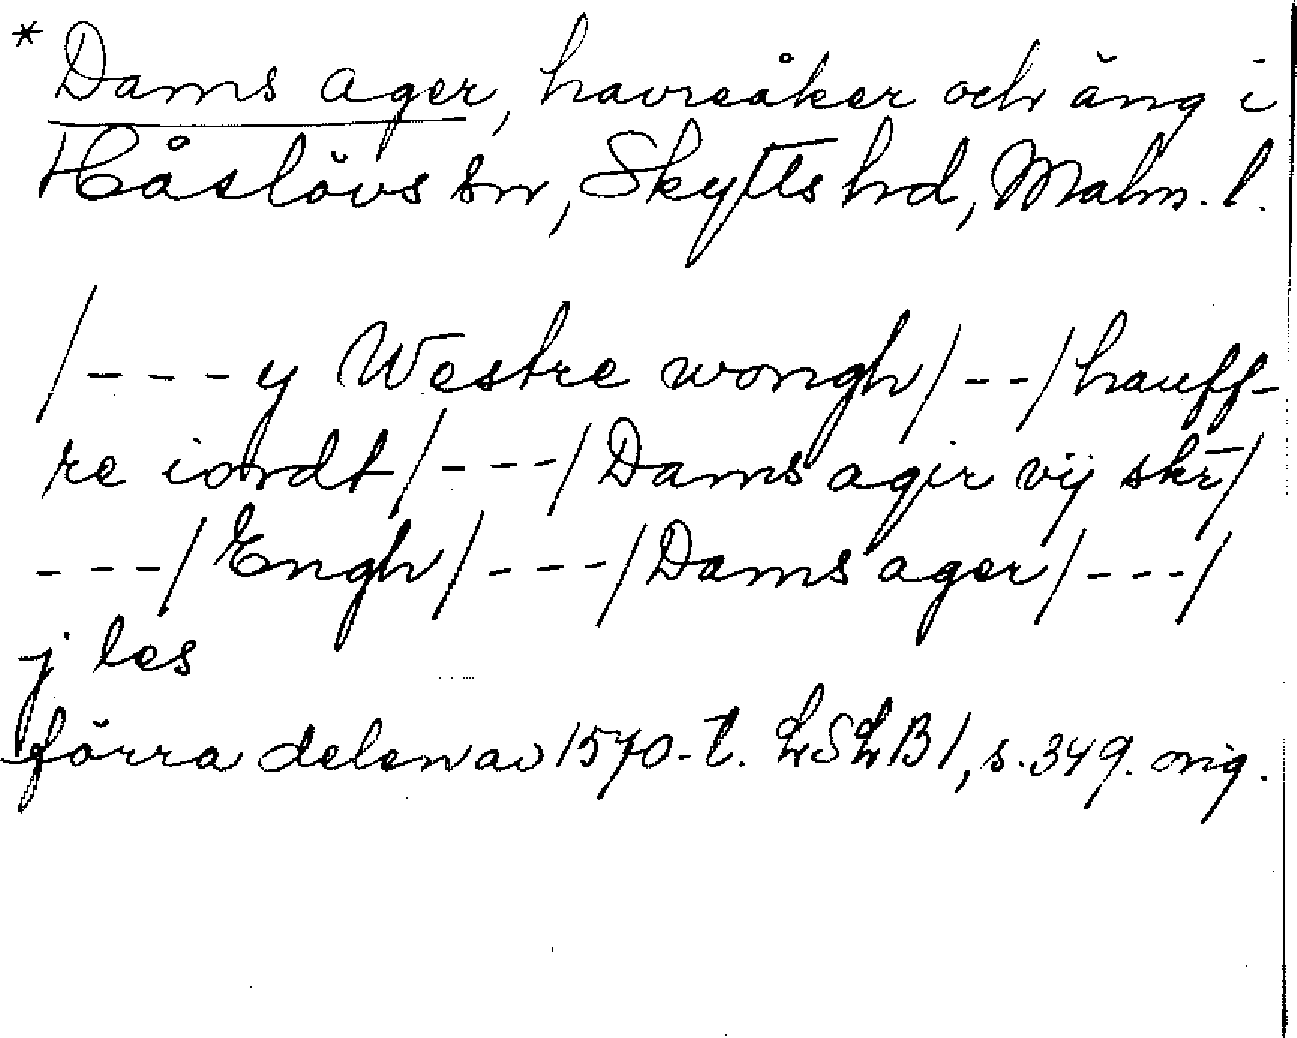 * Dams ager, havreåker och äng i
Håslövs sn, Skytts hd, Malm. l.
/---y Westre wongh/--/hauff-
re iordt/---/Dams agir vij skr̄/
---/Engh/---/Dams ager/---/
j les
förra delen av 1570-t. LSLB1, s. 349. orig.